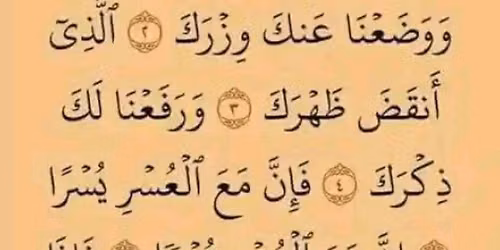 وَوَضَعۡنَا عَنكَ وِزۡرَكَ ٢ ٱلَّذِيٓ
أَنقَضَ ظَهۡرَكَ ٣ وَرَفَعۡنَا لَكَ
ذِكۡرَكَ ٤ فَإِنَّ مَعَ ٱلۡعُسۡرِ يُسۡرًا